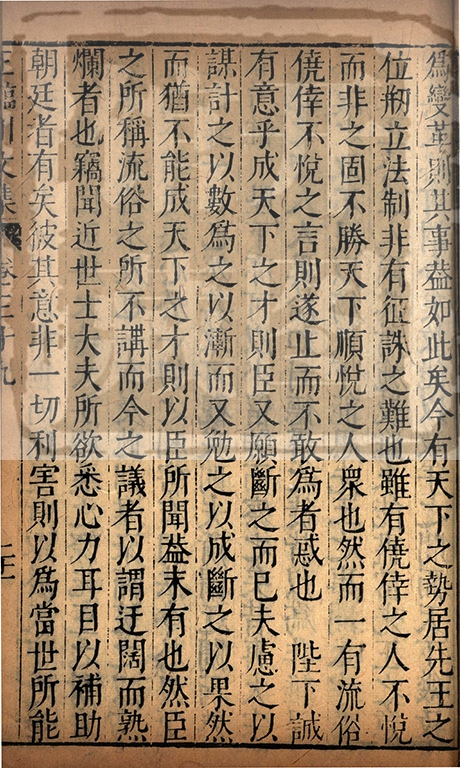 爲變革則其事葢如此矣今有天下之勢居先王之
位刱立法制非有征誅之難也雖有僥倖之人不悅
而非之固不勝天下順悅之人衆也然而一有流俗
僥倖不悅之言則遂止而不敢爲者惑也 陛下誠
有意乎成天下之才則臣又願斷之而已夫慮之以
謀計之以數爲之以漸而又勉之以成斷之以果然
而猶不能成天下之才則以臣所聞葢末有也然臣
之所稱流俗之所不講而今之議者以謂迂闊而熟
爛者也竊聞近世士大夫所欲悉心力耳目以補助
朝廷者有矣彼其意非一切利害則以爲當世所能
王臨川文集 卷三十九